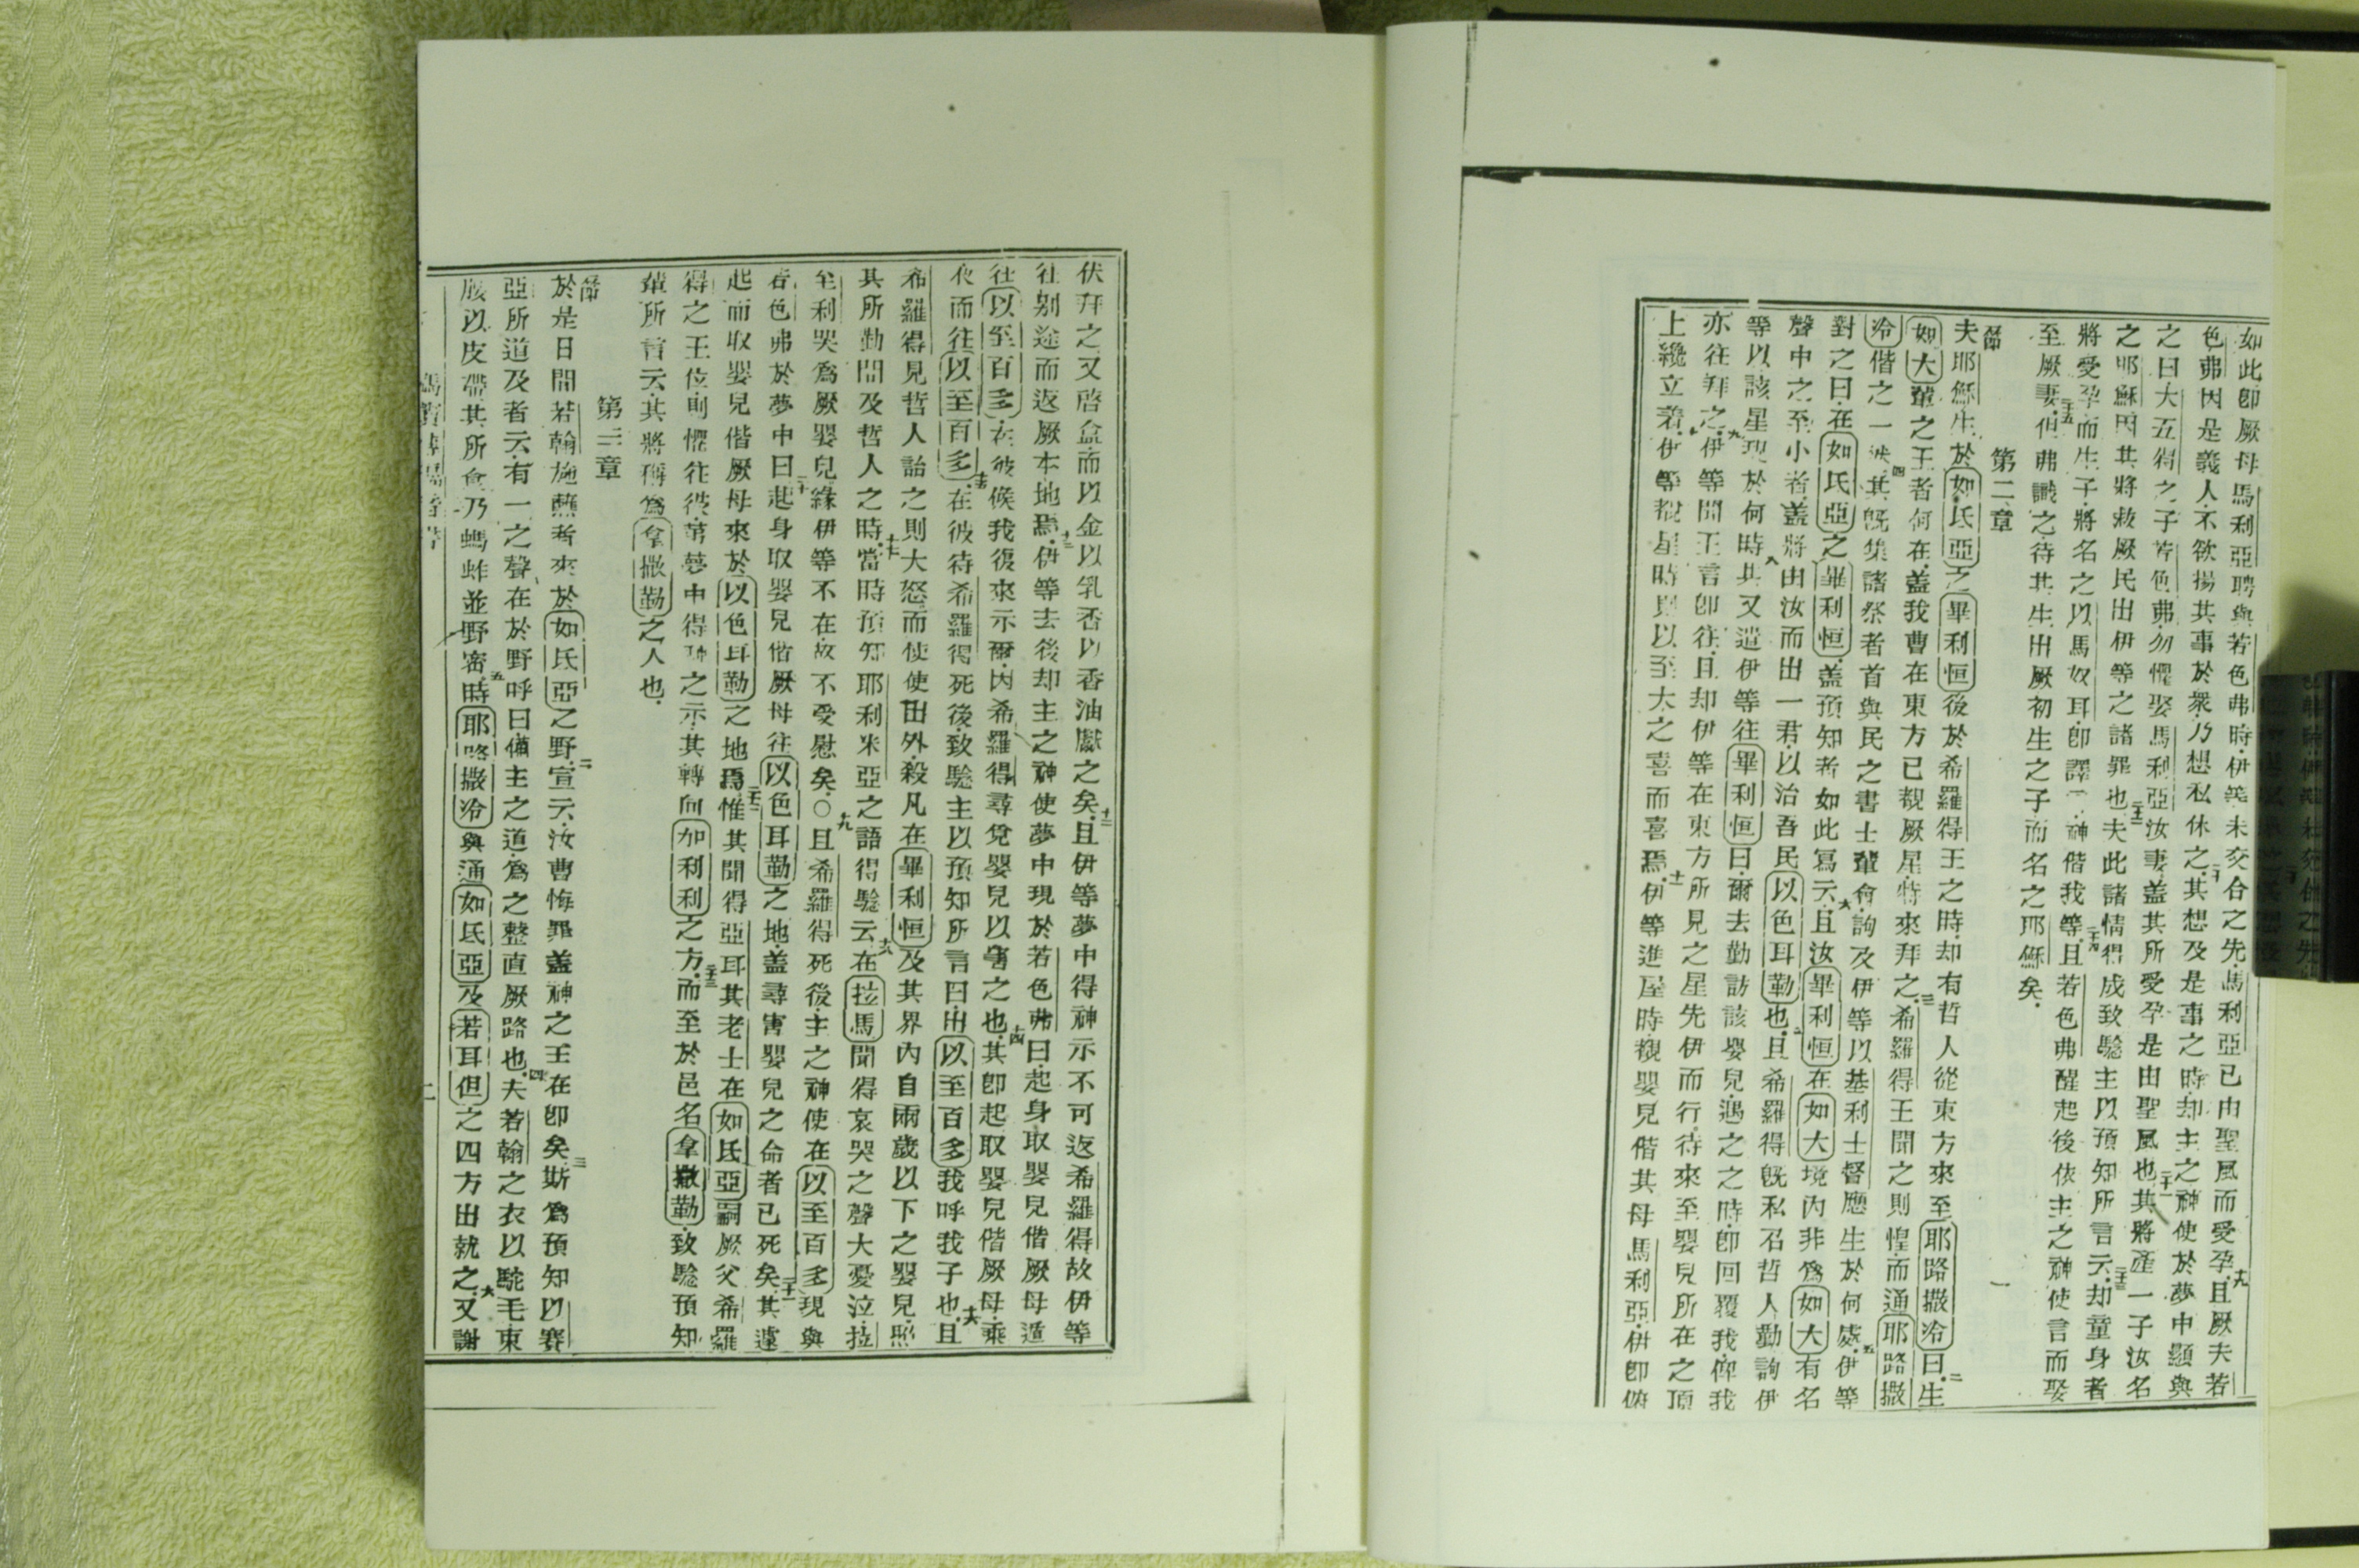 如此卽厥母馬利亞聘與若色弗時伊等未交合之先馬利亞已由聖風而受孕十九且厥夫若
色弗因是義人不欲揚其事於衆乃想私休之二十其想及是事之時却主之神使於夢中顯與
之曰大五得之子若色弗勿懼娶馬利亞汝妻蓋其所受孕是由聖風也二十一其將產一子汝名
之耶穌因其將救厥民出伊等之諸罪也二十二夫此諸情得成致驗主以預知所言云二十三却童身者
將受孕而生子將名之以馬奴耳卽譯神偕我等二十四且若色弗醒起後依主之神使言而娶
至厥妻二十五但弗識之待其生出厥初生之子而名之耶穌矣
第二章
一節夫耶穌生於如氏亞之畢利恒後於希羅得王之時却有哲人從東方來至耶路撒冷曰二生
如大輩之王者何在蓋我曹在東方已覩厥星特來拜之三希羅得王聞之則惶而通耶路撒
冷偕之一然四其旣集諸祭者首與民之書士輩會詢及伊等以基利士督應生於何處五伊等
對之曰在如氏亞之畢利恒蓋預知者如此寫云六且汝畢利恒在如大境內非爲如大有名
聲中之至小者蓋將由汝而出一君以治吾民以色耳勒也七且希羅得旣私召哲人勤詢伊
等以該星現於何時八其又遣伊等往畢利恒曰爾去勤訪該嬰兒遇之之時卽回覆我俾我
亦往拜之九伊等聞王言卽往且却伊等在東方所見之星先伊而行待來至嬰兒所在之頂
上纔立着十伊等覩星時則以至大之喜而喜焉十一伊等進屋時覩嬰兒偕其母馬利亞伊卽俯
一
伏拜之又啓盒而以金以乳香以香油獻之矣十二且伊等夢中得神示不可返希羅得故伊等
往别途而返厥本地焉十三伊等去後却主之神使夢中現於若色弗曰起身取嬰兒偕厥母遁
往以至百多在彼候我復來示爾因希羅得尋覓嬰兒以害之也十四其卽起取嬰兒偕厥母乘
夜而往以至百多十五在彼待希羅得死後致驗主以預知所言曰出以至百多我呼我子也十六且
希羅得見哲人詒之則大怒而使使出外殺凡在畢利恒及其界內自兩歲以下之嬰兒照
其所勤問及哲人之時十七當時預知耶利米亞之語得驗云十八在拉馬聞得哀哭之聲大憂泣拉
至利哭爲厥嬰兒緣伊等不在故不受慰矣○十九且希羅得死後主之神使在以至百多現與
若色弗於夢中曰二十起身取嬰兒偕厥母往以色耳勒之地蓋尋害嬰兒之命者已死矣二十一其遂
起而取嬰兒偕厥母來於以色耳勒之地焉二十二惟其聞得亞耳其老士在如氏亞嗣厥父希羅
得之王位則懼往彼第夢中得神之示其轉向加利利之方二十三而至於邑名拿撒勒致驗預知
輩所言云其將稱爲拿撒勒之人也
第三章
一節於是日間若翰施蘸者來於如氏亞之野二宣云汝曹悔罪蓋神之王在卽矣三斯爲預知以賽
亞所道及者云有一之聲在於野呼曰備主之道爲之整直厥路也四夫若翰之衣以駝毛束
腰以皮帶其所食乃螞蚱並野蜜五時耶路撒冷與通如氏亞及若耳但之四方出就之六又謝
二